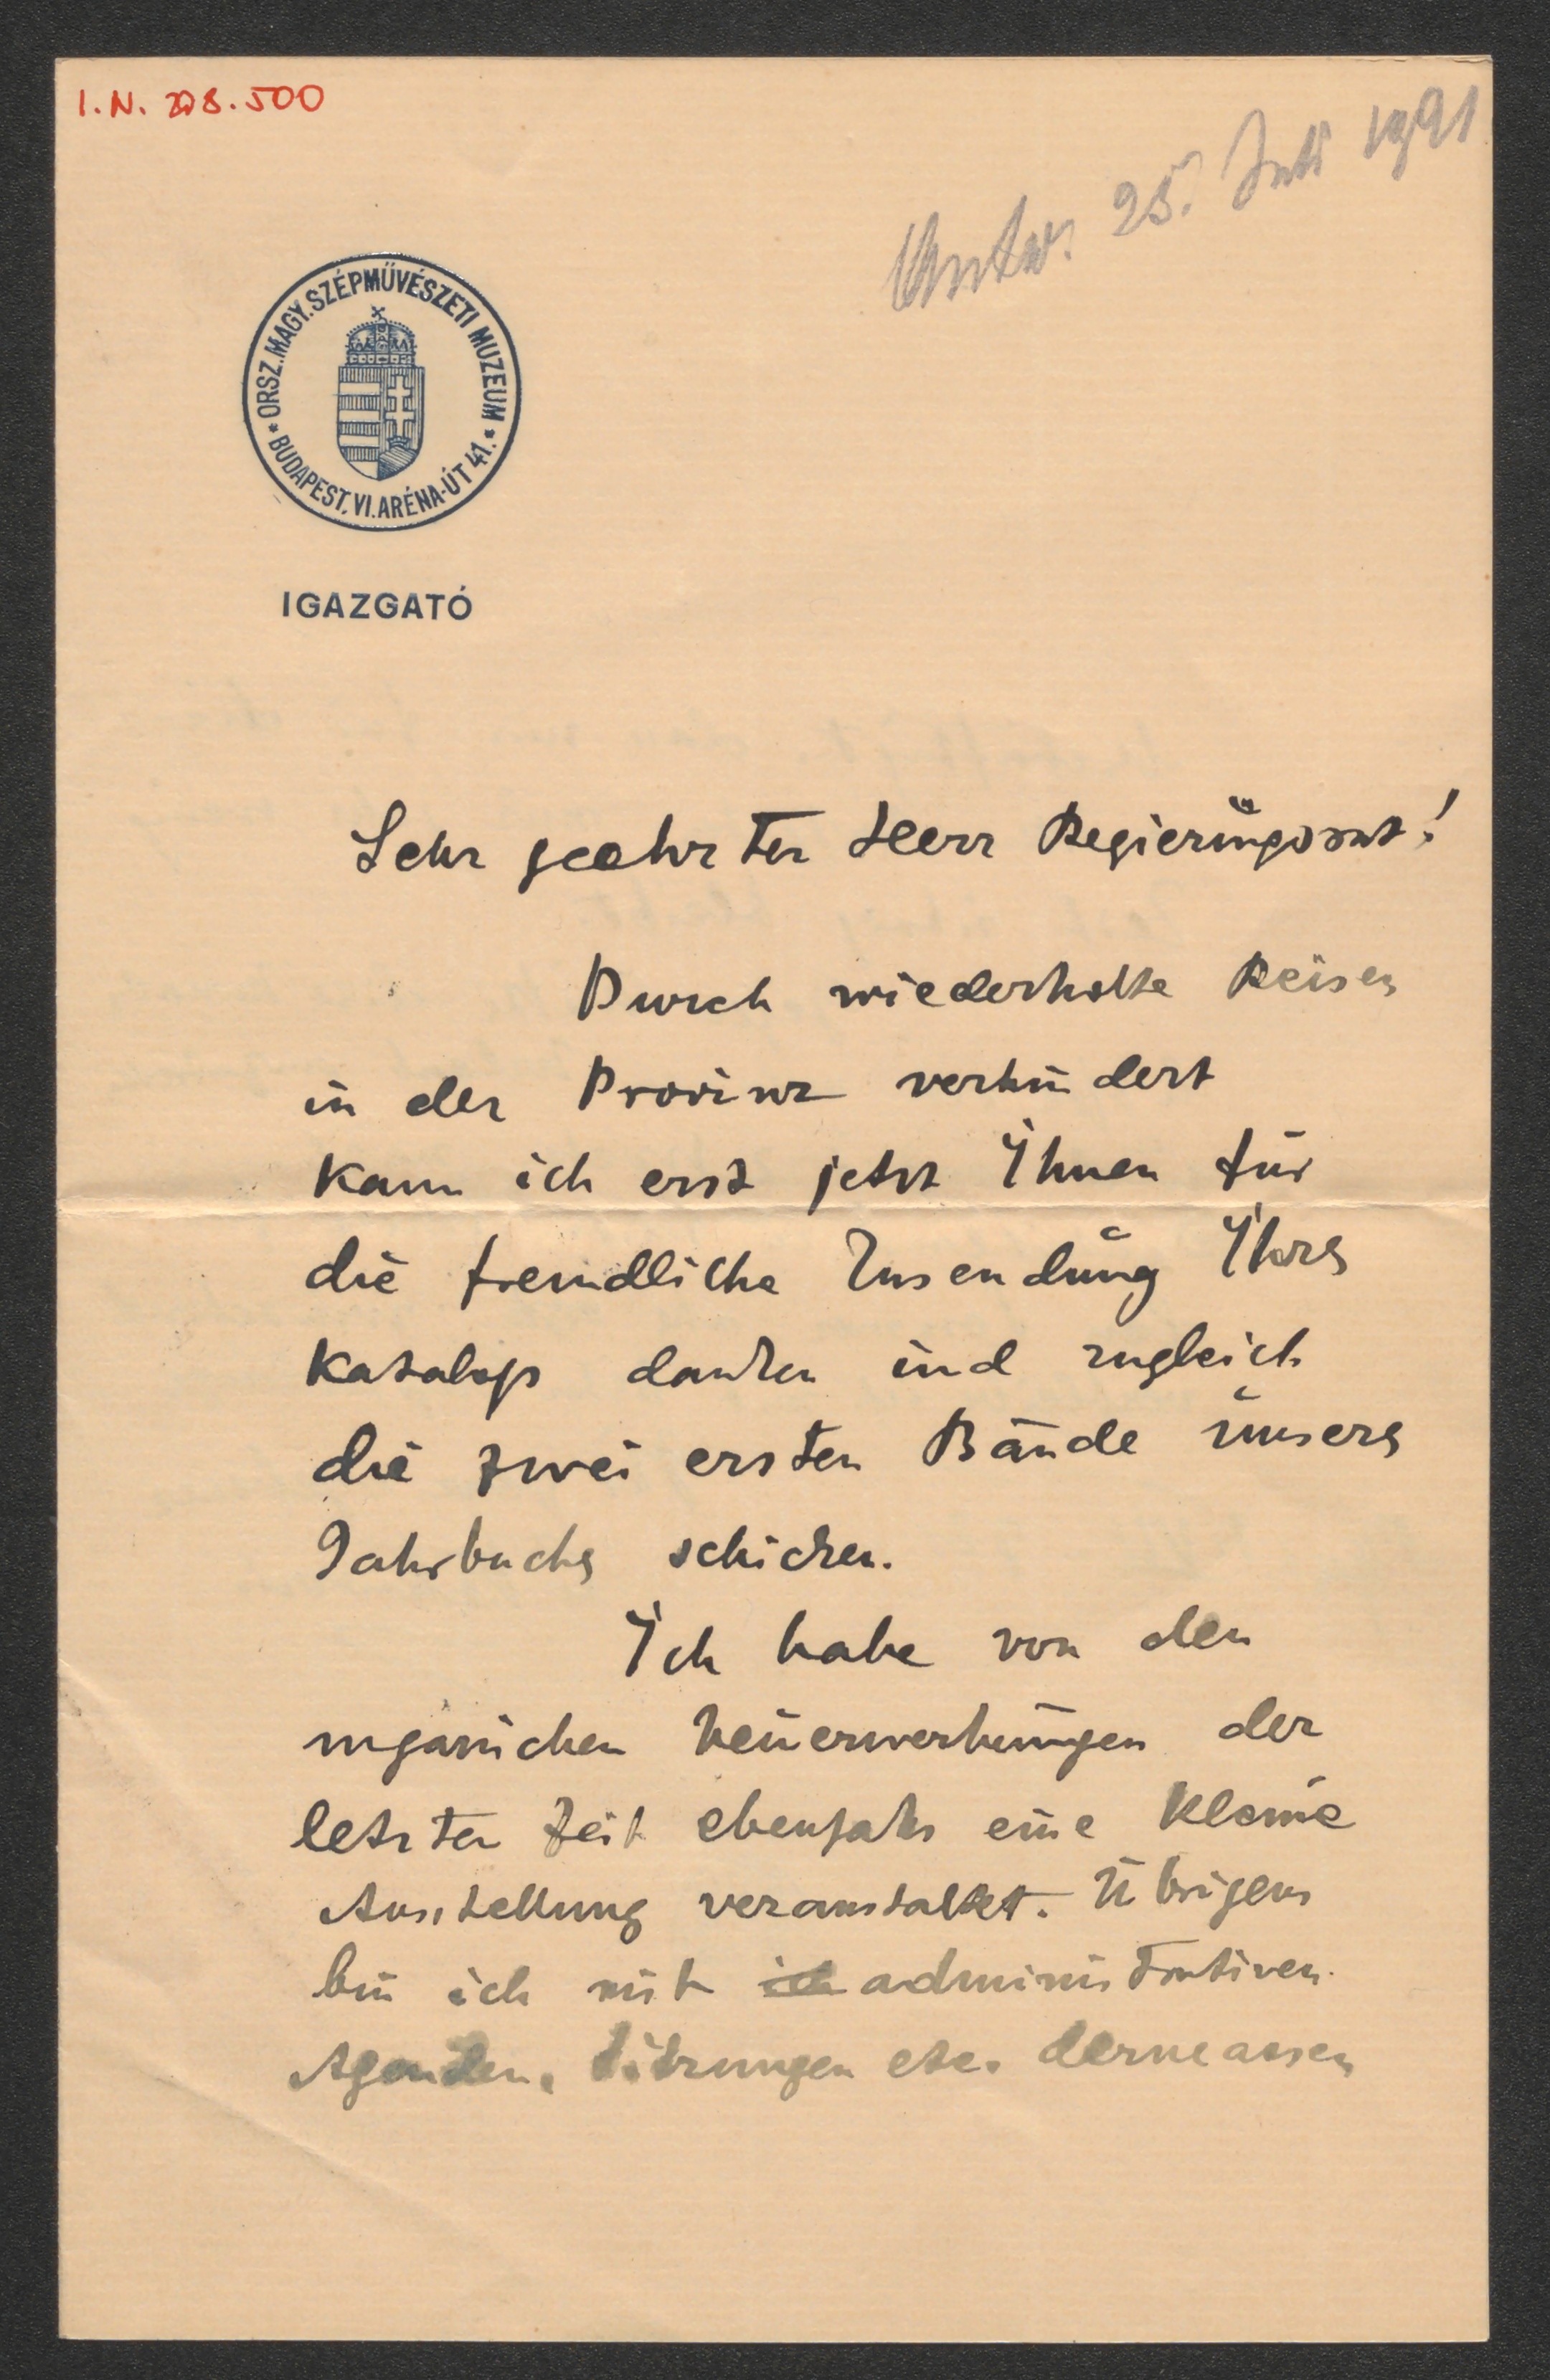 I.N. 208.500
Antw. 25. Juli 1921
ORSZ. MAGY. SZÉPMŰVÉSZETI MUZEUM
* BUDAPEST, VI. ARÉNA-ÚT 41. *
IGAZGATÓ
Sehr geehrter Herr Regierungsrat!
Durch wiederholte Reisen
in der Provinz verhindert
kann ich erst jetzt Ihnen für
die freundliche Zusendung Ihres
Katalogs danken und zugleich
die zwei ersten Bände unseres
Jahrbuches schicken.
Ich habe von den
ungarischen Neuerwerbungen der
letzten Zeit ebenfalls eine kleine
Ausstellung veranstaltet. Übrigens
bin ich mit ich administrativen
Agenden, Sitzungen etc. dermassen